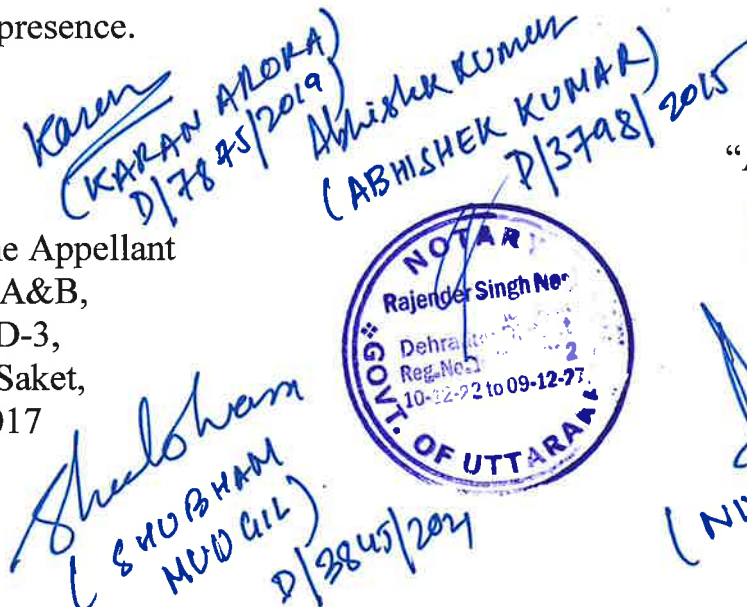 presence.
Karan
(KARAN ARORA)
D/7875/2019
Abhishek Kumar
(ABHISHEK KUMAR)
D/3798/2015
“
ne Appellant
A&B,
D-3,
Saket,
017
NOTAR
Rajender Singh
Dehra
Reg.No.
10-12-22 to 09-12-27
GOVT. OF UTTARAK
Shubham
(SHUBHAM
MUDGIL)
D/3845/2021
(NI